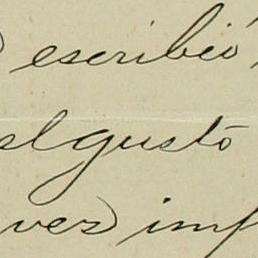 escribió
el gusto
vez imp